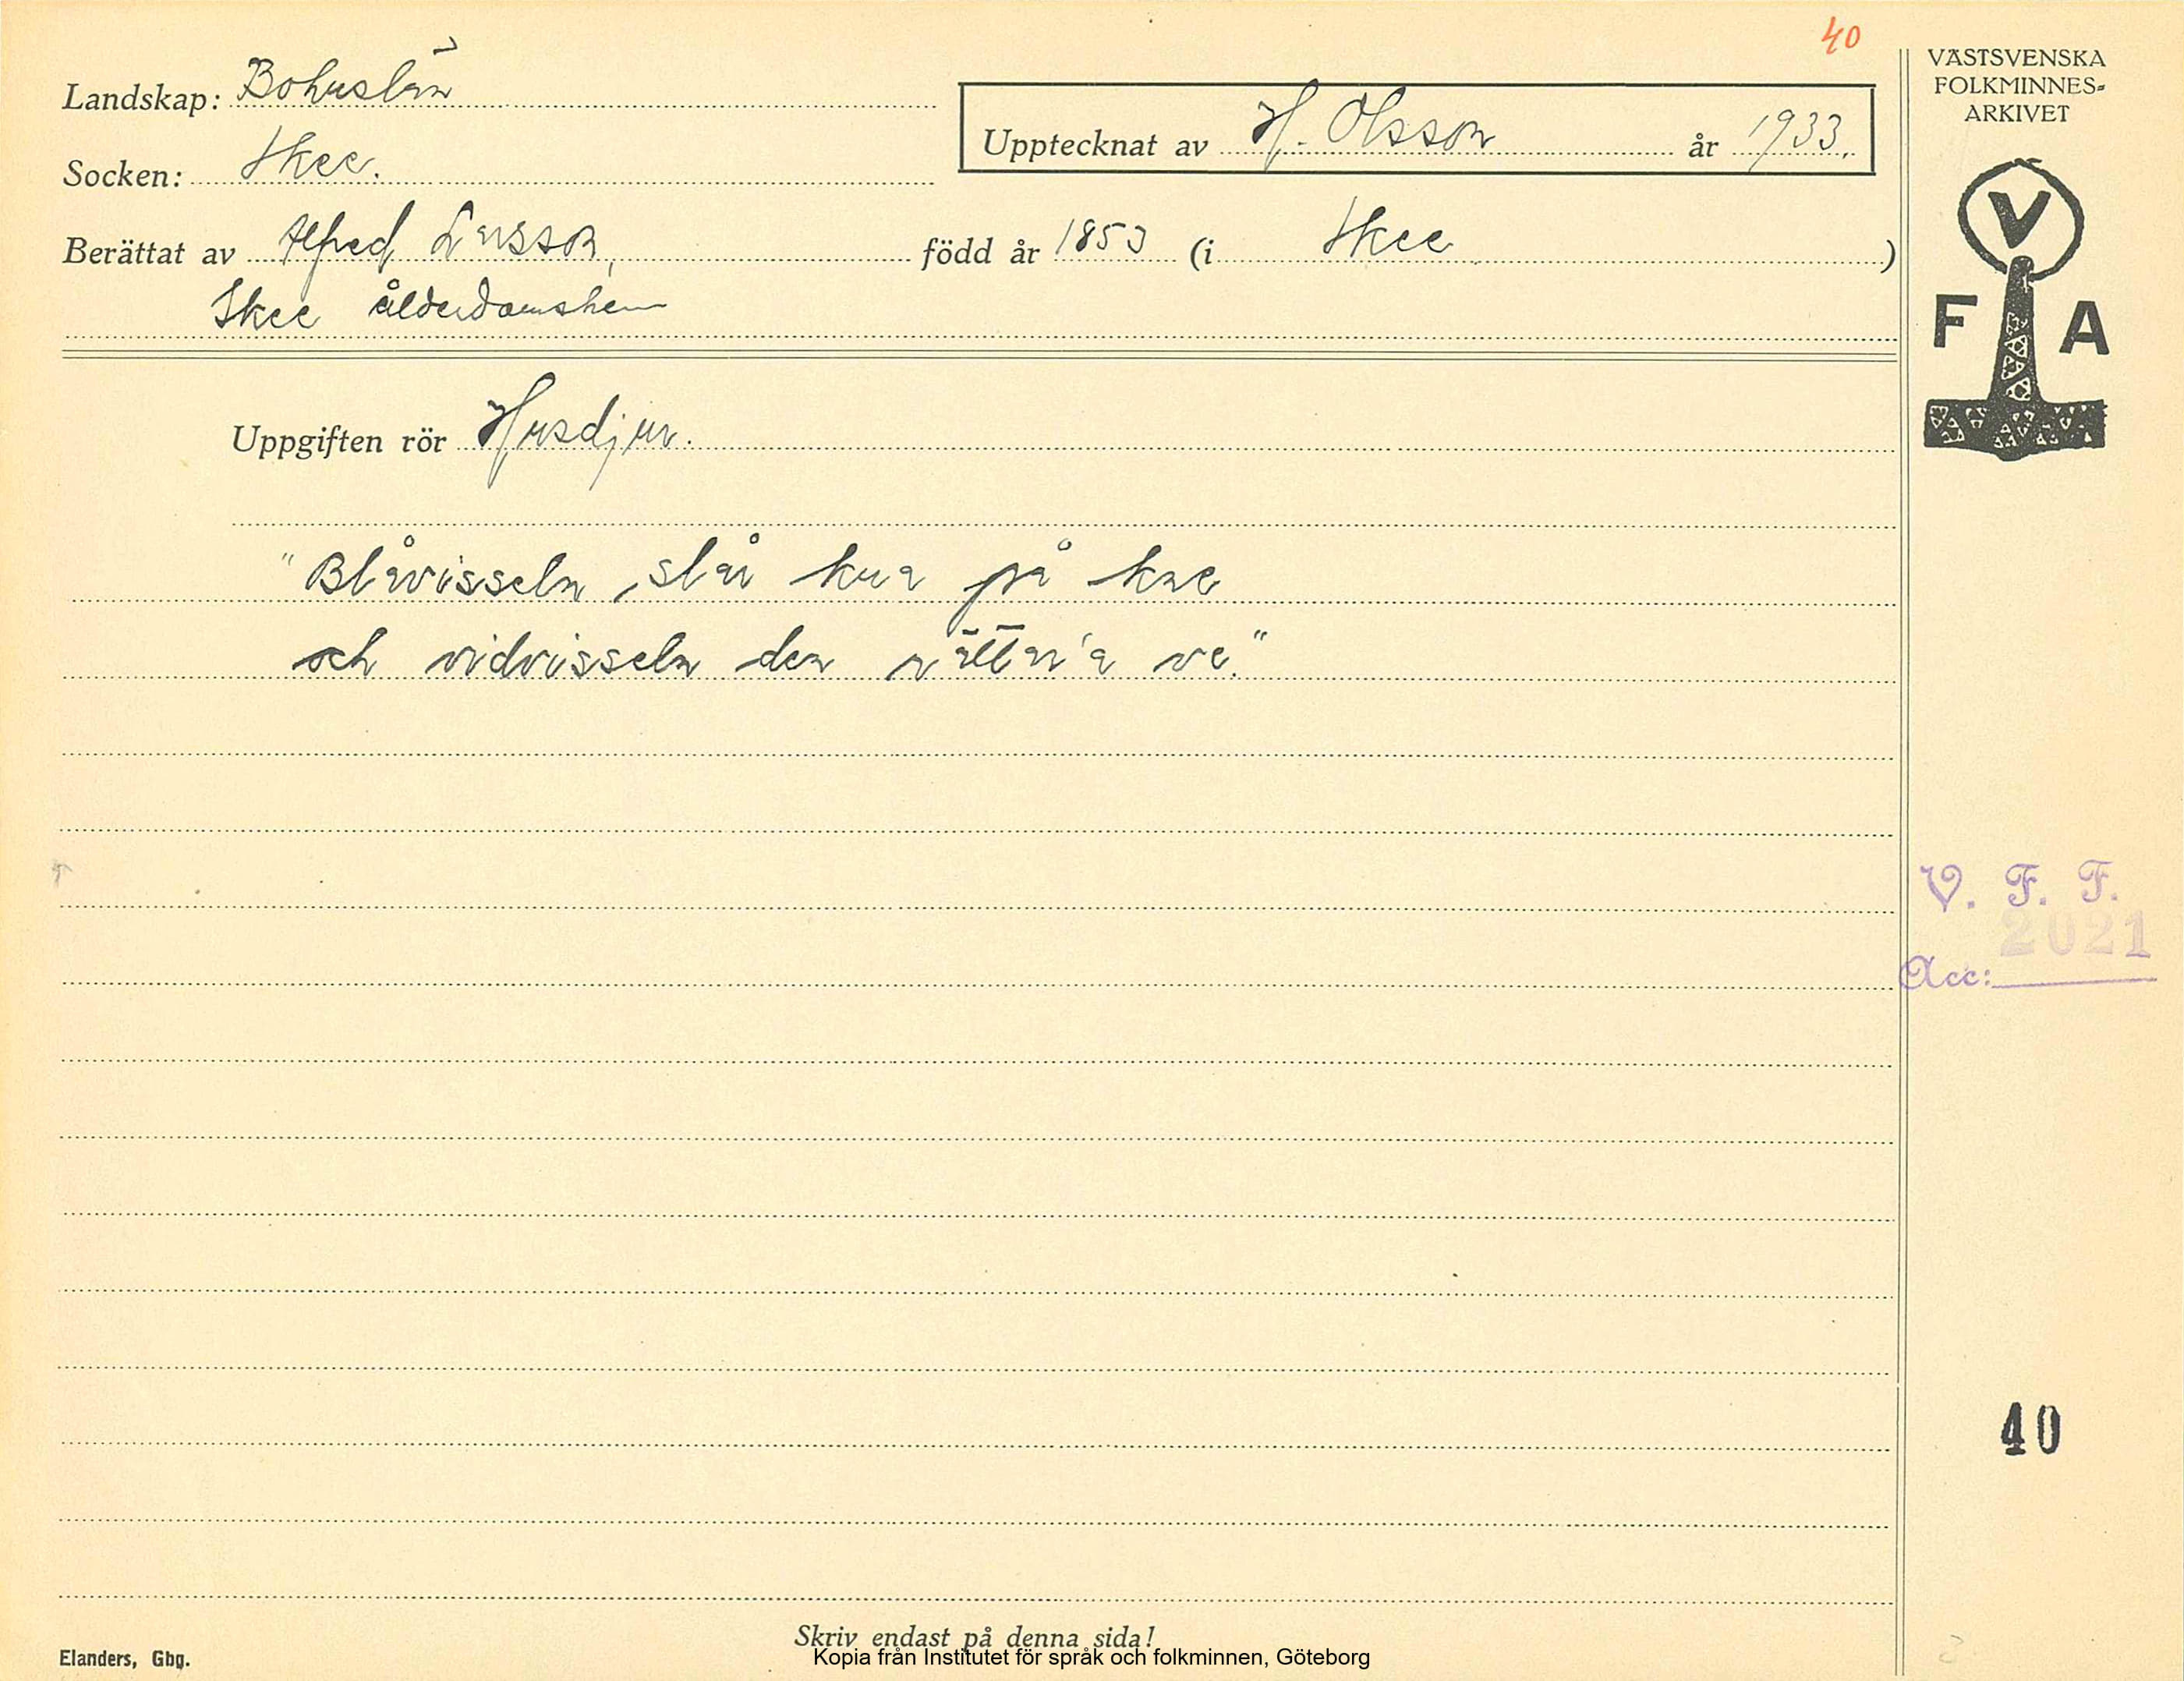 40
Landskap: Bohuslän
Socken: Skee.
Upptecknat av H. Olsson år 1933.
Berättat av Alfred Larsson, född år 1853 (i Skee )
Skee ålderdomshem
VÄSTSVENSKA
FOLKMINNES-
ARKIVET
V
F A
Uppgiften rör Husdjur.
"Blåvisseln, slår kua på kne
och vidvisseln den rättar'a ve."
V. F. F.
2021
Acc:
40
Skriv endast på denna sida!
Elanders, Gbg.
Kopia från Institutet för språk och folkminnen, Göteborg